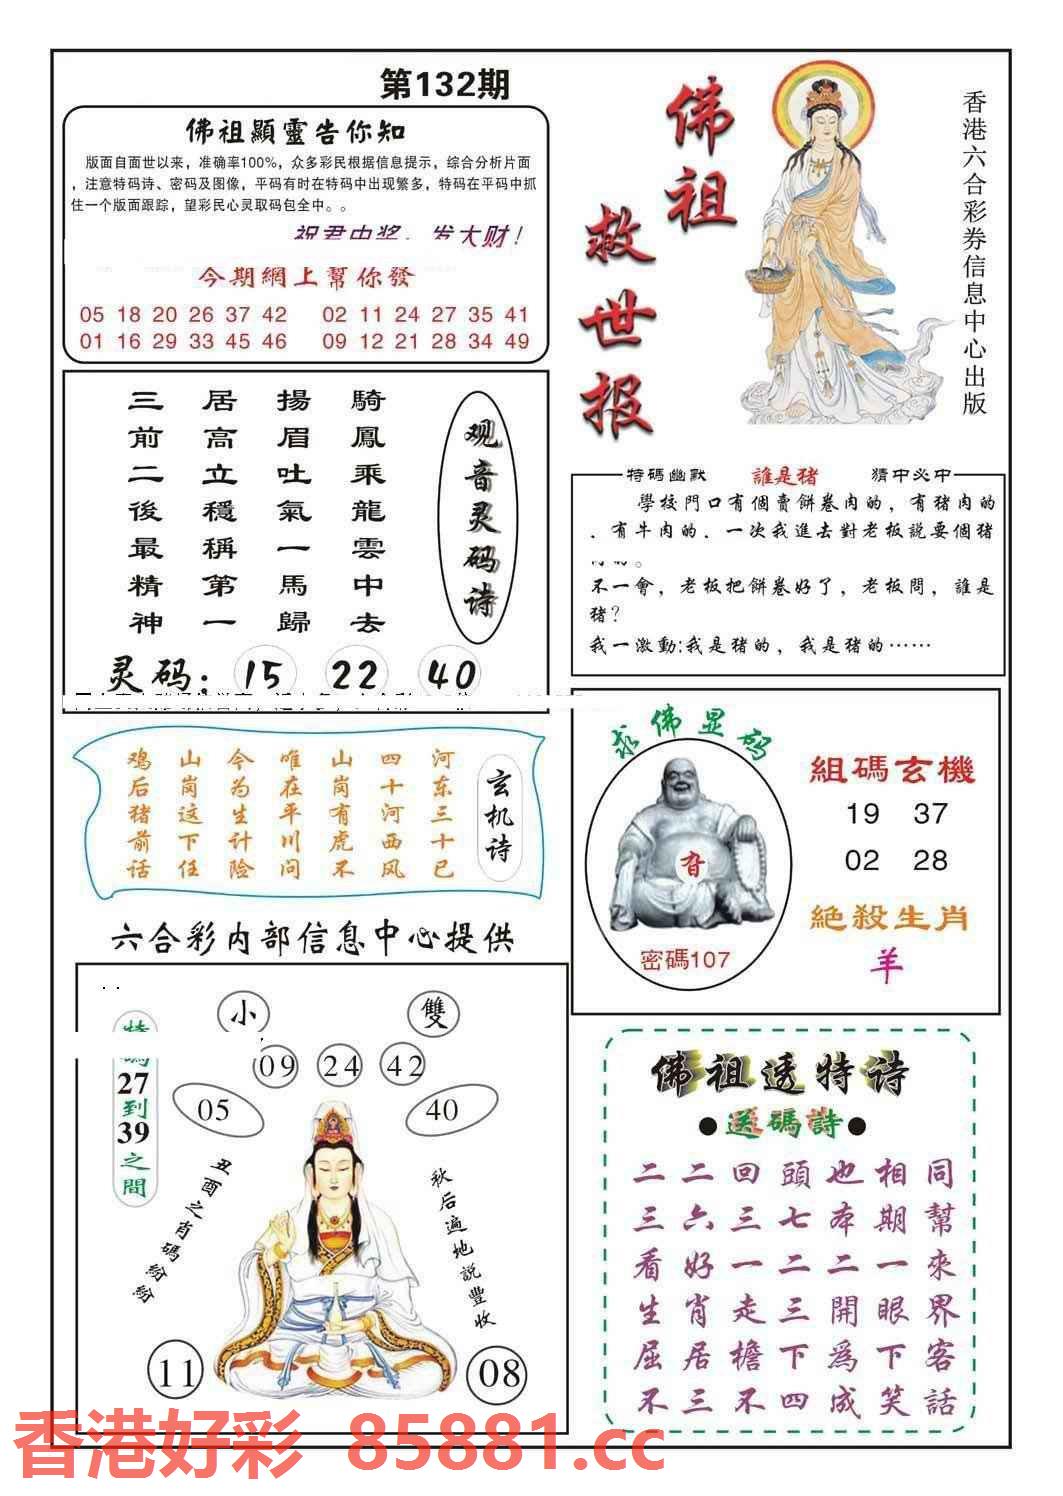 第132期
佛祖顯靈告你知
版面自面世以来，准确率100%，众多彩民根据信息提示，综合分析片面
，注意特码诗、密码及图像，平码有时在特码中出现繁多，特码在平码中抓
住一个版面跟踪，望彩民心灵取码包全中。。
祝君中奖，发大财！
今期網上幫你發
05 18 20 26 37 42 02 11 24 27 35 41
01 16 29 33 45 46 09 12 21 28 34 49
佛祖
救世报
香港六合彩券信息中心出版
观音灵码诗
騎鳳乘龍雲中去
揚眉吐氣一馬歸
居高立穩稱第一
三前二後最精神
灵码：15 22 40
特碼幽默 誰是猪 猜中必中
學校門口有個賣餅卷肉的，有猪肉的
．有牛肉的．一次我進去對老板説要個猪
不一會，老板把餅卷好了，老板問，誰是
猪？
我一激動:我是猪的，我是猪的……
玄机诗
河东三十已
四十河西风
山岗有虎不
唯在平川问
今为生计险
山岗这下任
鸡后猪前话
求佛显码
密碼107
組碼玄機
19 37
02 28
絕殺生肖
羊
六合彩内部信息中心提供
小 雙
09 24 42
05 40
27到39之間
丑酉之肖碼紛紛
秋后遍地説豐收
11 08
佛祖透特诗
●送碼詩●
二二回頭也相同
三六三七本期幫
看好一二二一來
生肖走三開眼界
屈居檐下爲下客
不三不四成笑話
香港好彩 85881.cc